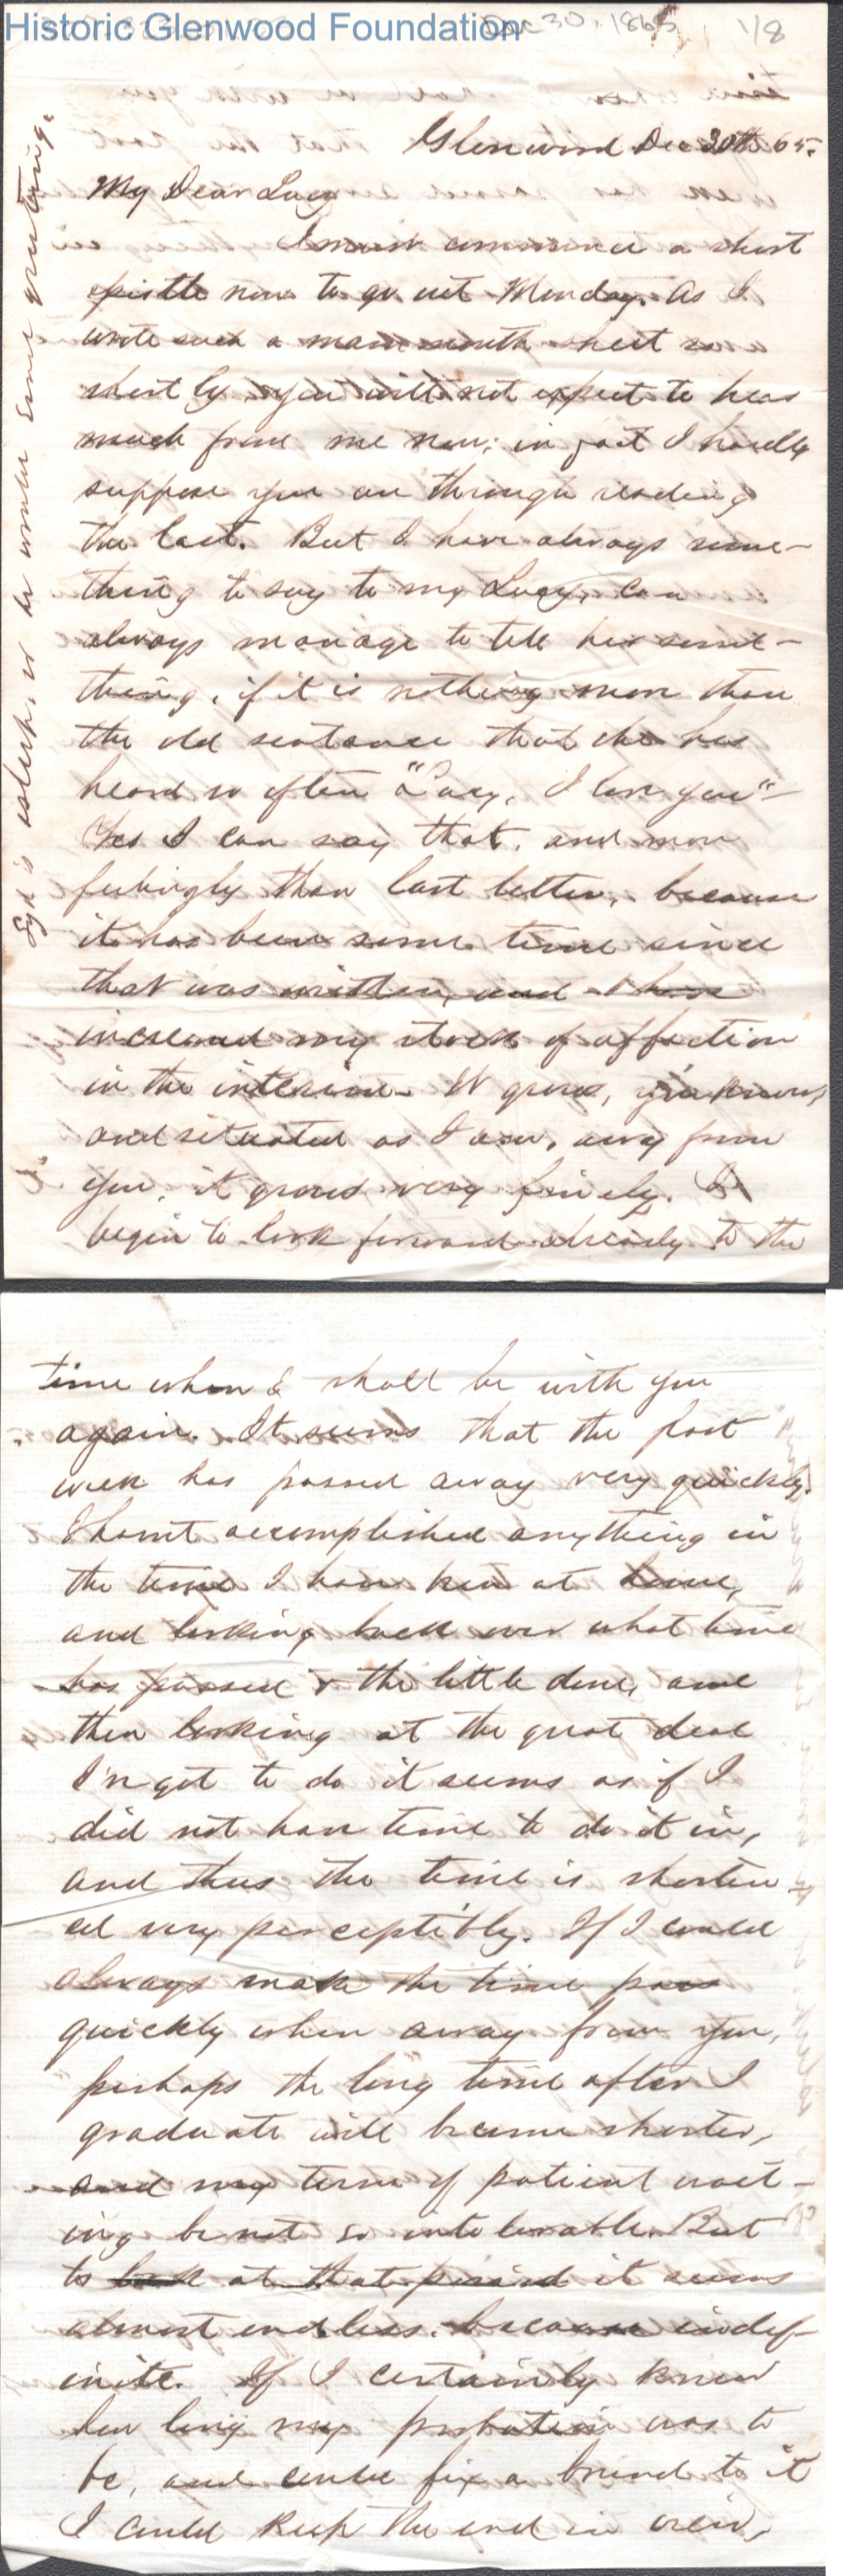 Historic Glenwood Foundation
Dec 30, 1865
1/8
Glenwood Dec 30th 65.
My Dear Lucy
I must commence a short
epistle now to go out Monday. As I
wrote such a mammouth sheet so
shortly, you will not expect to hear
much from me now; in fact I hardly
suppose you are through reading
the last. But I have always some-
thing to say to my Lucy, can
always manage to tell her some-
thing, if it is nothing more than
the old sentance that she has
heard so often "Lucy, I love you"-
Yes I can say that, and more
feelingly than last letter, because
it has been some time since
that was written, and I have
increased my stock of affection
in the interim. It grows, you know,
and situated as I am, away from
you, it grows very finely. I
begin to look forward already to the
Syd is asleep, or he would send greeting.
time when I shall be with you
again. It seems that the past
week has passed away very quickly.
I havnt accomplished anything in
the time I have been at home,
and looking back over what time
has passed & the little done, and
then looking at the great deal
I've got to do it seems as if I
did not have time to do it in,
and thus the time is shorten-
ed very perceptibly. If I could
always make the time pass
quickly when away from you,
perhaps the "long" time after I
graduate will become shorter,
and my term of patient wait-
ing be not so intolerable. But
to look at that period it seems
almost endless, because indef-
inite. If I certainly knew
how long my probation was to
be, and could fix a bound to it
I could keep the end in view,